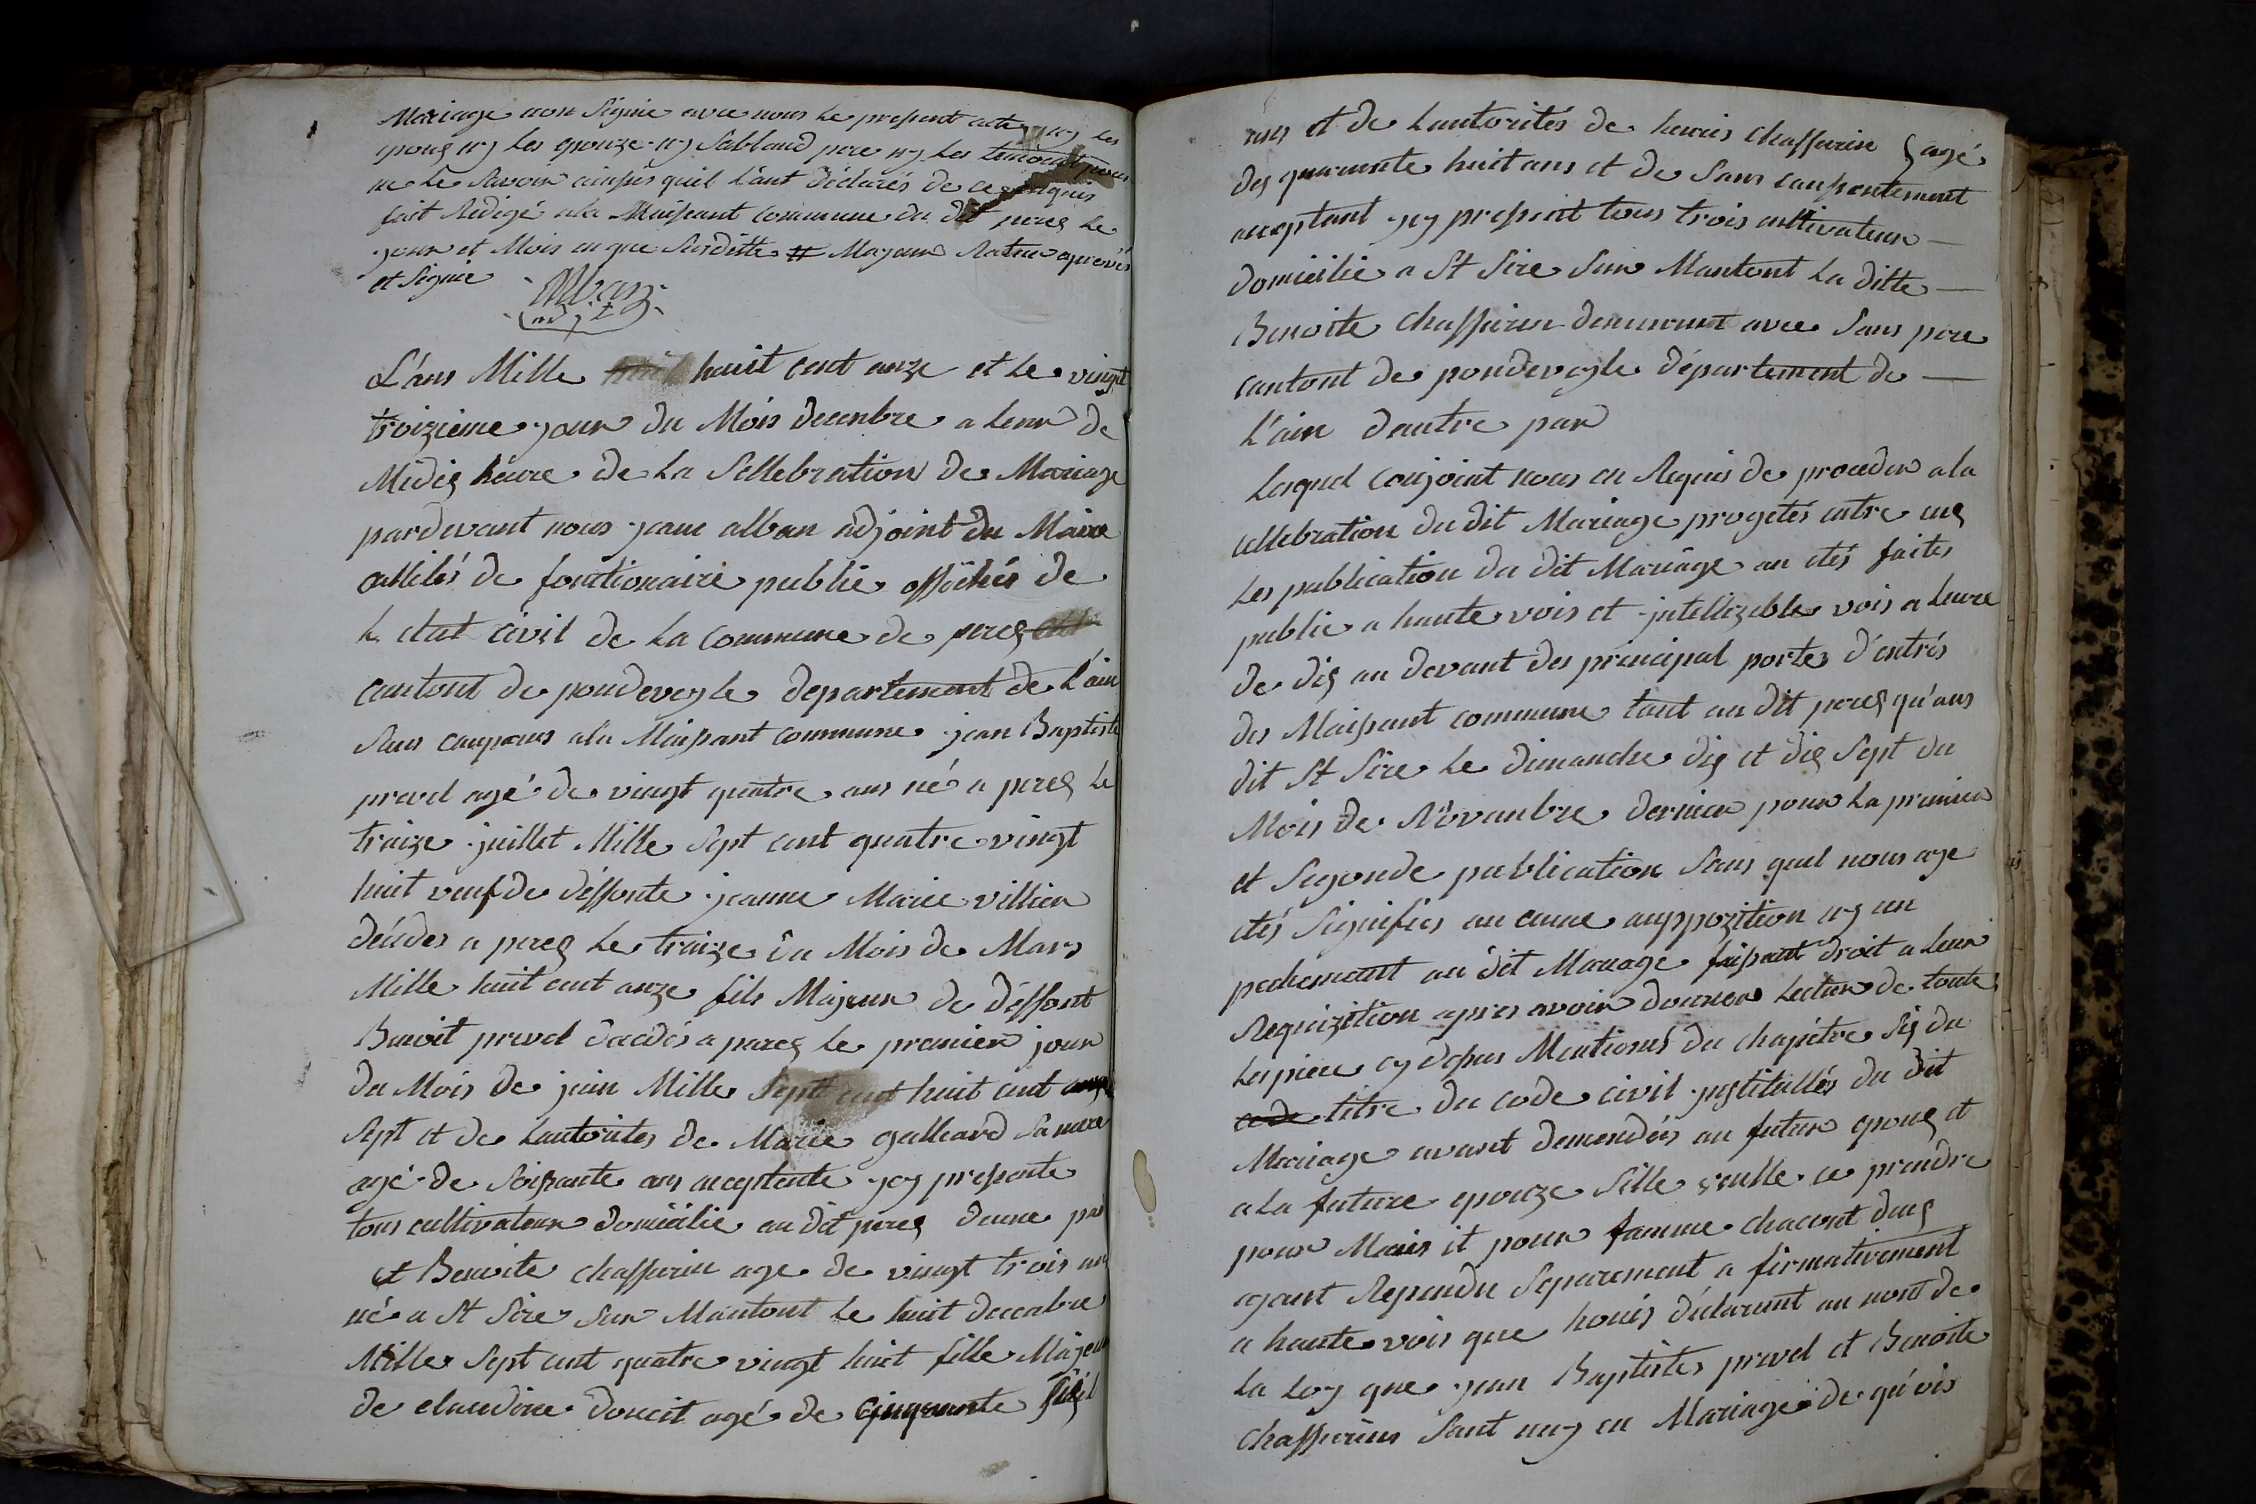 Mariage non Signie avec nous le present acte ny les
epouz ny les epouze ny Sabland pere ny les temoint pour
ne le Savoir ainsis quil l'ant déclarés de ce requis
fait Redigé ala Maisant commune du dit perez le
jour et Mois en que Surditte # Majeur Rature aprovés
et Signie
Alban
adjt
L'ans Mille huit cent anze et le vingt
troizieme jour du Mois decenbre a leur de
Midis heure de la Sellebration de Mariage
pardevant nous jean alban adjoint du Maire
allélés de fonctionaire public offichés de
L etat civil de la commune de perez
cantont de pondeveyle departement de l'ain
Sans conparus ala Maisant commune jean Baptiste
prevel agé de vingt quatre ans né a perez le
traize juillet Mille Sept cent quatre vingt
huit veuf de deffonte jeanne Marie villien
décédes a perez le traize du Mois de Mars
Mille huit cent anze fils Majeur de deffont
Benoit prevel décédés a perez le premier jour
du Mois de juin Mille Sept cent huit cent
Sept et de lautorites de Marie galleard Sa mere
agé de Soisante ans aceptente ycy presente
tous cultivateur domicilie au dit perez deune par
et Benoite chaffurin age de vingt trois an
né a St Sire Sur Mantont le huit decenbre
Mille Sept cent quatre vingt huit fille Majeur
de claudine doucit agé de cinquante
ans et de lautorités de louis chaffurin agé
des quarante huit ans et de Sans consentement
aceptent ycy present tous trois cultivateur —
domicilie a St Sire Sur Mantont la ditte —
Benoite chaffurin demeurent avec Sans pere
cantont de pondeveyle département de —
L'ain dautre par
Lesquel conjoint nous on Requis de proceder ala
cellebration du dit Mariage progetés entre eus
les publication du dit Mariage an étés faites
public a haute vois et jntellizeble vois a leure
de dis au devant des principal portes d'entrés
des Maisant commune tant au dit perez qu'aus
dit St Sire le dimanche dis et dis Sept du
Mois de Novanbre dernier pour la premier
et Segonde publication Sans quel nous aye
étés Signifies au cune auppozition ny an
pechemant au dit Mariage faisant droit a leur
Requizition apres avoir donner lecture de toute
les piece cy desus Mentionés du chapitre Sis du
code titre du code civil jnstitullés du dit
Mariage avant demendées au futur epouz et
a la future epouze Sille veulle ce prendre
pour Maris et pour famme chacunt deus
ayant Rependu Separement a firmativement
a haute vois que houis déclarent au nont de
la loy que jean Baptistes prevel et Benoite
chaffurins Sant uny en Mariage de qu'ois